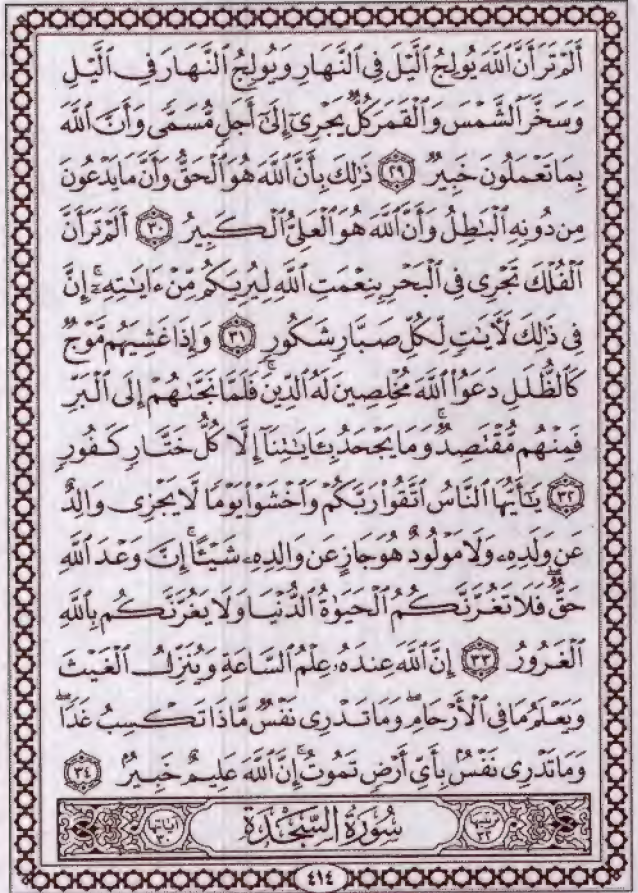 أَلَمْ تَرَ أَنَّ ٱللَّهَ يُولِجُ ٱلَّيْلَ فِي ٱلنَّهَارِ وَيُولِجُ ٱلنَّهَارَ فِي ٱلَّيْلِ
وَسَخَّرَ ٱلشَّمْسَ وَٱلْقَمَرَ كُلٌّ يَجْرِيٓ إِلَىٰٓ أَجَلٍ مُّسَمًّى وَأَنَّ ٱللَّهَ
بِمَا تَعْمَلُونَ خَبِيرٌ ٢٩ ذَٰلِكَ بِأَنَّ ٱللَّهَ هُوَ ٱلْحَقُّ وَأَنَّ مَا يَدْعُونَ
مِن دُونِهِ ٱلْبَٰطِلُ وَأَنَّ ٱللَّهَ هُوَ ٱلْعَلِيُّ ٱلْكَبِيرُ ٣٠ أَلَمْ تَرَ أَنَّ
ٱلْفُلْكَ تَجْرِي فِي ٱلْبَحْرِ بِنِعْمَتِ ٱللَّهِ لِيُرِيَكُم مِّنْ ءَايَٰتِهِۦٓۚ إِنَّ
فِي ذَٰلِكَ لَأٓيَٰتٍ لِّكُلِّ صَبَّارٍ شَكُورٍ ٣١ وَإِذَا غَشِيَهُم مَّوْجٌ
كَٱلظُّلَلِ دَعَوُا۟ ٱللَّهَ مُخْلِصِينَ لَهُ ٱلدِّينَ فَلَمَّا نَجَّىٰهُمْ إِلَى ٱلْبَرِّ
فَمِنْهُم مُّقْتَصِدٌۚ وَمَا يَجْحَدُ بِـَٔايَٰتِنَآ إِلَّا كُلُّ خَتَّارٍ كَفُورٍ
٣٢ يَٰٓأَيُّهَا ٱلنَّاسُ ٱتَّقُوا۟ رَبَّكُمْ وَٱخْشَوْا۟ يَوْمًا لَّا يَجْزِي وَالِدٌ
عَن وَلَدِهِۦ وَلَا مَوْلُودٌ هُوَ جَازٍ عَن وَالِدِهِۦ شَيْـًٔاۚ إِنَّ وَعْدَ ٱللَّهِ
حَقٌّۖ فَلَا تَغُرَّنَّكُمُ ٱلْحَيَوٰةُ ٱلدُّنْيَا وَلَا يَغُرَّنَّكُم بِٱللَّهِ
ٱلْغَرُورُ ٣٣ إِنَّ ٱللَّهَ عِندَهُۥ عِلْمُ ٱلسَّاعَةِ وَيُنَزِّلُ ٱلْغَيْثَ
وَيَعْلَمُ مَا فِي ٱلْأَرْحَامِۖ وَمَا تَدْرِي نَفْسٌ مَّاذَا تَكْسِبُ غَدًاۖ
وَمَا تَدْرِي نَفْسٌۢ بِأَيِّ أَرْضٍ تَمُوتُۚ إِنَّ ٱللَّهَ عَلِيمٌ خَبِيرٌۢ ٣٤
ترتيبها ٣٢ سُورَةُ السَّجْدَةِ آياتها ٣٠
٤١٤